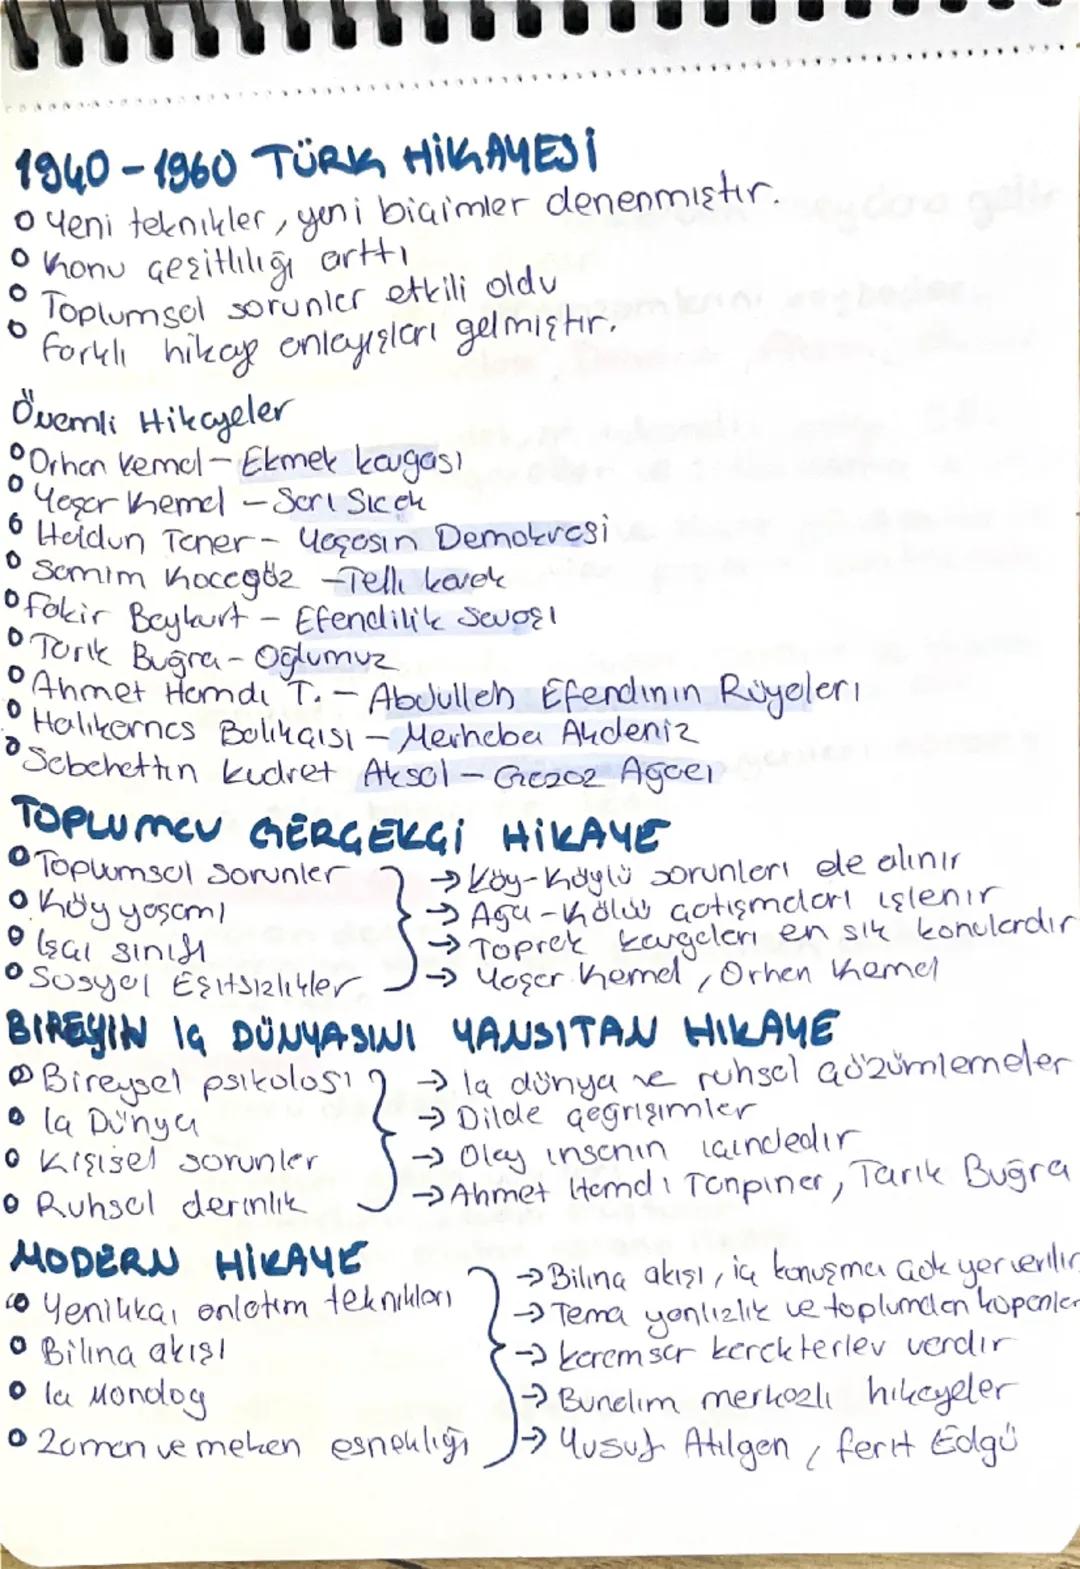 1940-1960 TÜRK HİKAYESİ
Yeni teknikler, yeni biçimler denenmiştir.
Konu çeşitliliği arttı
Toplumsal sorunlar etkili oldu
Farklı hikaye anlayışları gelmiştir.
Önemli Hikayeler
Orhan Kemal - Ekmek Kavgası
Yaşar Kemal - Sarı Sıcak
Haldun Taner - Yaşasın Demokrasi
Samim Kocagöz - Telli Kavak
Fakir Baykurt - Efendilik Savaşı
Tarık Buğra - Oğlumuz
Ahmet Hamdi T. - Abdullah Efendinin Rüyaları
Halikarnas Balıkçısı - Merhaba Akdeniz
Sabahattin Kudret Aksal - Gazoz Ağacı
TOPLUMCU GERÇEKÇİ HİKAYE
Toplumsal sorunlar → Köy-Köylü sorunları ele alınır
Köy yaşamı → Ağa-Köylü çatışmaları işlenir
İşçi sınıfı → Toprak kavgaları en sık konulardır
Sosyal Eşitsizlikler → Yaşar Kemal, Orhan Kemal
BİREYİN İÇ DÜNYASINI YANSITAN HİKAYE
Bireysel psikoloji → İç dünya ve ruhsal çözümlemeler
İç Dünya → Dilde çağrışımlar
Kişisel sorunlar → Olay insanın içindedir
Ruhsal derinlik → Ahmet Hamdi Tanpınar, Tarık Buğra
MODERN HİKAYE
Yenilikçi anlatım teknikleri → Bilinç akışı, iç konuşma çok yer verilir
Bilinç akışı → Tema yanlızlık ve toplumdan kopanlar
İç Monolog → Karamsar karakterler vardır
Zaman ve mekan esnekliği → Bunalım merkezli hikayeler
→ Yusuf Atılgan, Ferit Edgü